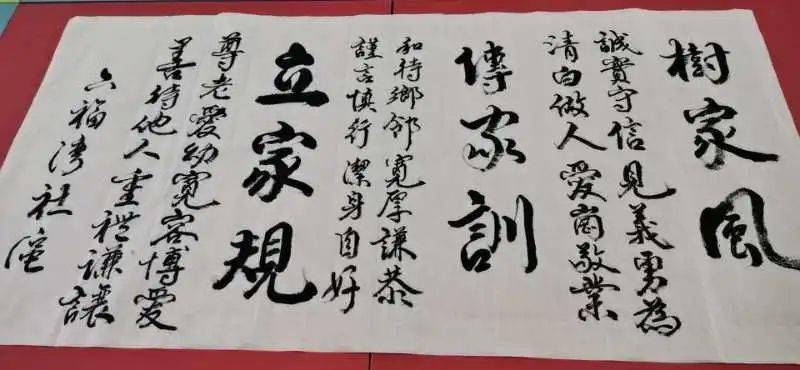 樹家風
誠實守信見義勇為
清白做人愛崗敬業
傳家訓
和待鄉鄰寬厚謙恭
謹言慎行潔身自好
立家規
尊老愛幼寬容博愛
善待他人重禮謙讓
六福灣社區